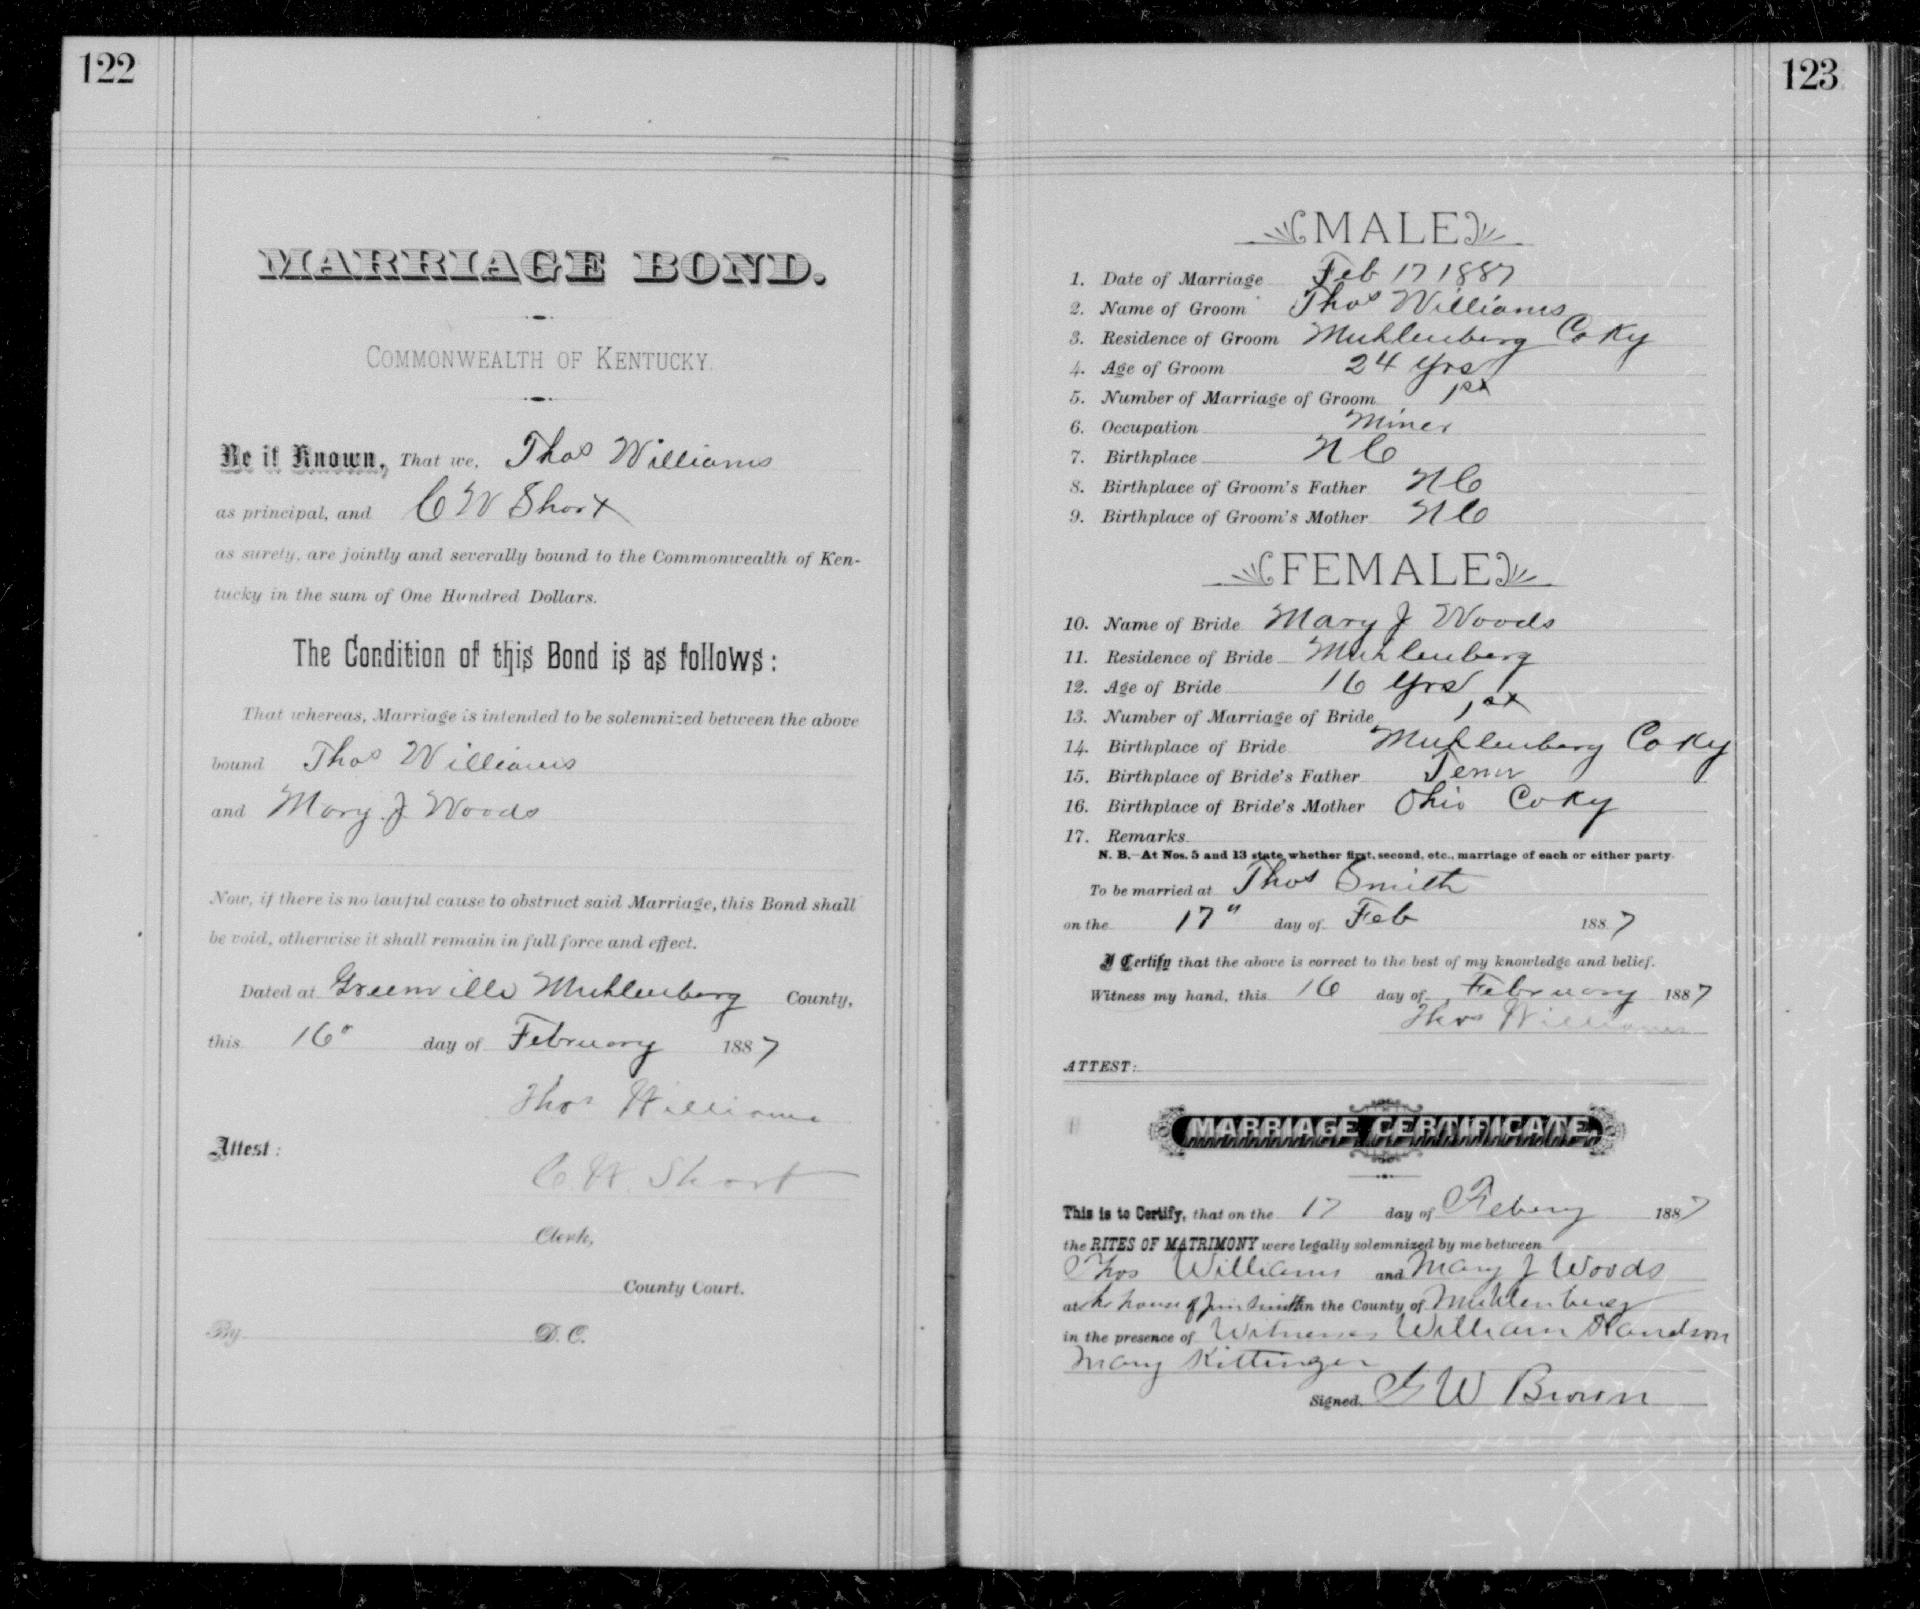 122
MARRIAGE BOND.
COMMONWEALTH OF KENTUCKY.
Be it Known, That we, Thos Williams
as principal, and C W Short
as surety, are jointly and severally bound to the Commonwealth of Ken-
tucky in the sum of One Hundred Dollars.
The Condition of this Bond is as follows:
That whereas, Marriage is intended to be solemnized between the above
bound Thos Williams
and Mary J Woods
Now, if there is no lawful cause to obstruct said Marriage, this Bond shall
be void, otherwise it shall remain in full force and effect.
Dated at Greenville Muhlenberg County,
this 16" day of February 1887
Thos Williams
Attest:
C. W. Short
Clerk,
County Court.
By D. C.
123
MALE
1. Date of Marriage Feb 17 1887
2. Name of Groom Thos Williams
3. Residence of Groom Muhlenberg Co Ky
4. Age of Groom 24 yrs
5. Number of Marriage of Groom 1st
6. Occupation Miner
7. Birthplace N C
8. Birthplace of Groom's Father N C
9. Birthplace of Groom's Mother N C
FEMALE
10. Name of Bride Mary J Woods
11. Residence of Bride Muhlenberg
12. Age of Bride 16 yrs
13. Number of Marriage of Bride 1st
14. Birthplace of Bride Muhlenberg Co Ky
15. Birthplace of Bride's Father Tenn
16. Birthplace of Bride's Mother Ohio Co Ky
17. Remarks
N. B.—At Nos. 5 and 13 state whether first, second, etc., marriage of each or either party.
To be married at Thos Smith
on the 17" day of Feb 1887
I Certify that the above is correct to the best of my knowledge and belief.
Witness my hand, this 16 day of February 1887
Thos Williams
ATTEST:
MARRIAGE CERTIFICATE.
This is to Certify, that on the 17 day of Febery 1887
the RITES OF MATRIMONY were legally solemnized by me between
Thos Williams and Mary J Woods
at house of Jim Smith in the County of Muhlenberg
in the presence of Witnesses William
Mary Kittinger
Signed, G W Brown